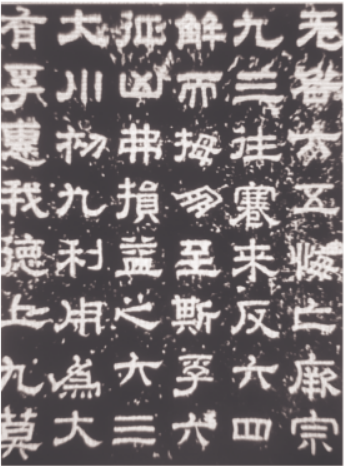 无咎六五悔亡厥宗
九三往蹇来反六四
解而拇朋至斯孚六
征凶弗損益之六三
大川初九利用為大
有孚惠我德上九莫